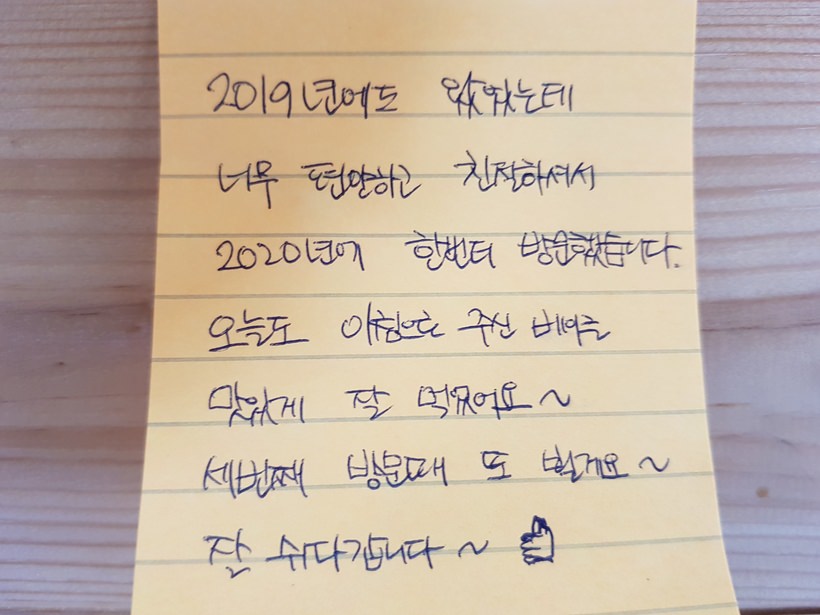 2019년에도 왔었는데
너무 편안하고 친절하셔서
2020년에 한번더 방문했습니다.
오늘도 아침으로 주신 베이글
맛있게 잘 먹었어요~
세번째 방문때 또 뵐게요~
잘 쉬다갑니다~